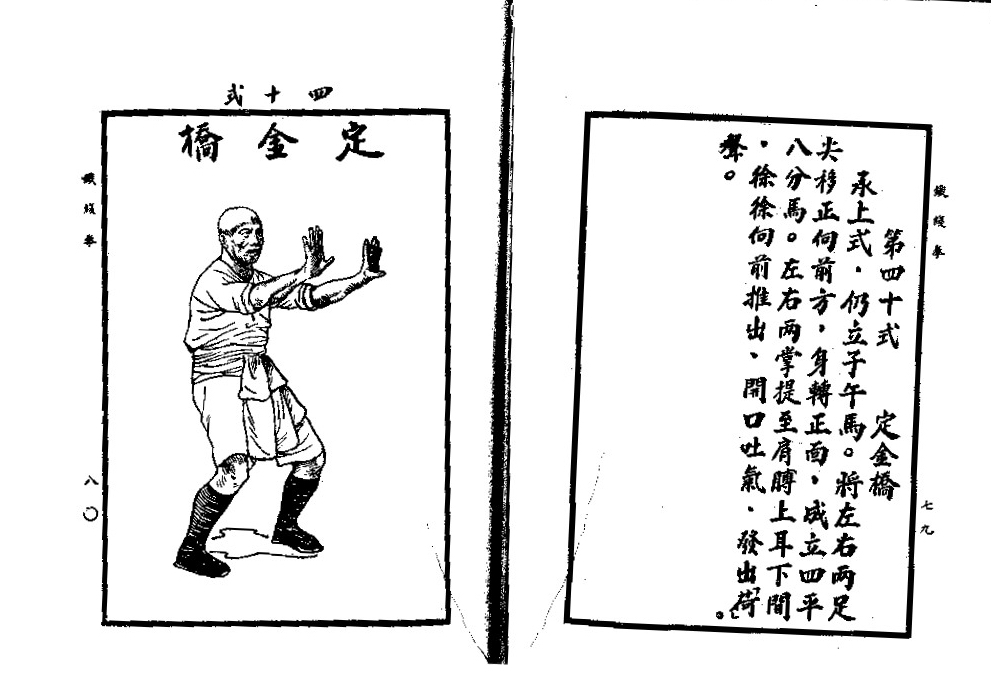 鐵綫拳
七九
第四十式　定金橋
承上式．仍立子午馬。將左右兩足
尖移正向前方，身轉正面，成立四平
八分馬。左右兩掌提至肩膊上耳下間
．徐徐向前推出、開口吐氣．發出「荷」
聲。
四十式
定金橋
鐵綫拳
八〇